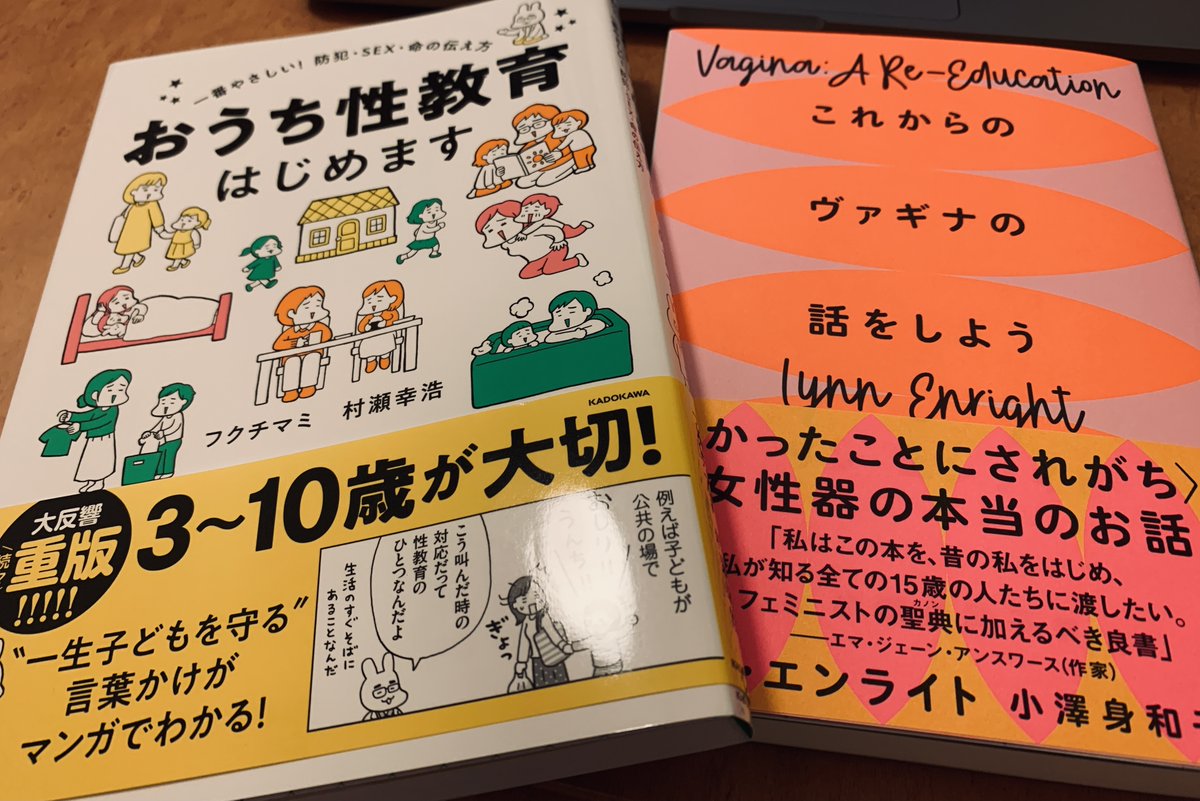 一番やさしい! 防犯・SEX・命の伝え方
おうち性教育
はじめます
フクチマミ 村瀬幸浩
KADOKAWA
大反響
重版
!!!!!
3〜10歳が大切!
"一生子どもを守る"
言葉かけが
マンガでわかる!
例えば子どもが
公共の場で
おしり!!
うんち!!
ぎょっ
こう叫んだ時の
対応だって
性教育の
ひとつなんだよ
生活のすぐそばに
あることなんだ
Vagina: A Re-Education
これからの
ヴァギナの
話をしよう
Lynn Enright
かったことにされがち〉
女性器の本当のお話
「私はこの本を、昔の私をはじめ、
私が知る全ての15歳の人たちに渡したい。
フェミニストの聖典に加えるべき良書」
カノン
――エマ・ジェーン・アンスワース(作家)
・エンライト 小澤身和